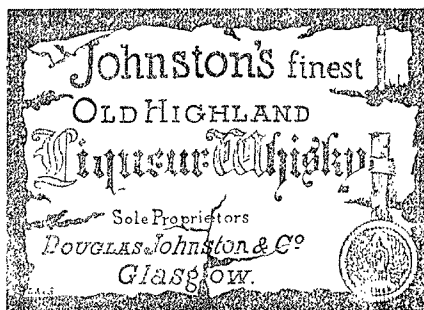 Johnston's finest
OLD HIGHLAND
Liqueur Whisky
Sole Proprietors
DOUGLAS Johnston & Cº
Glasgow.